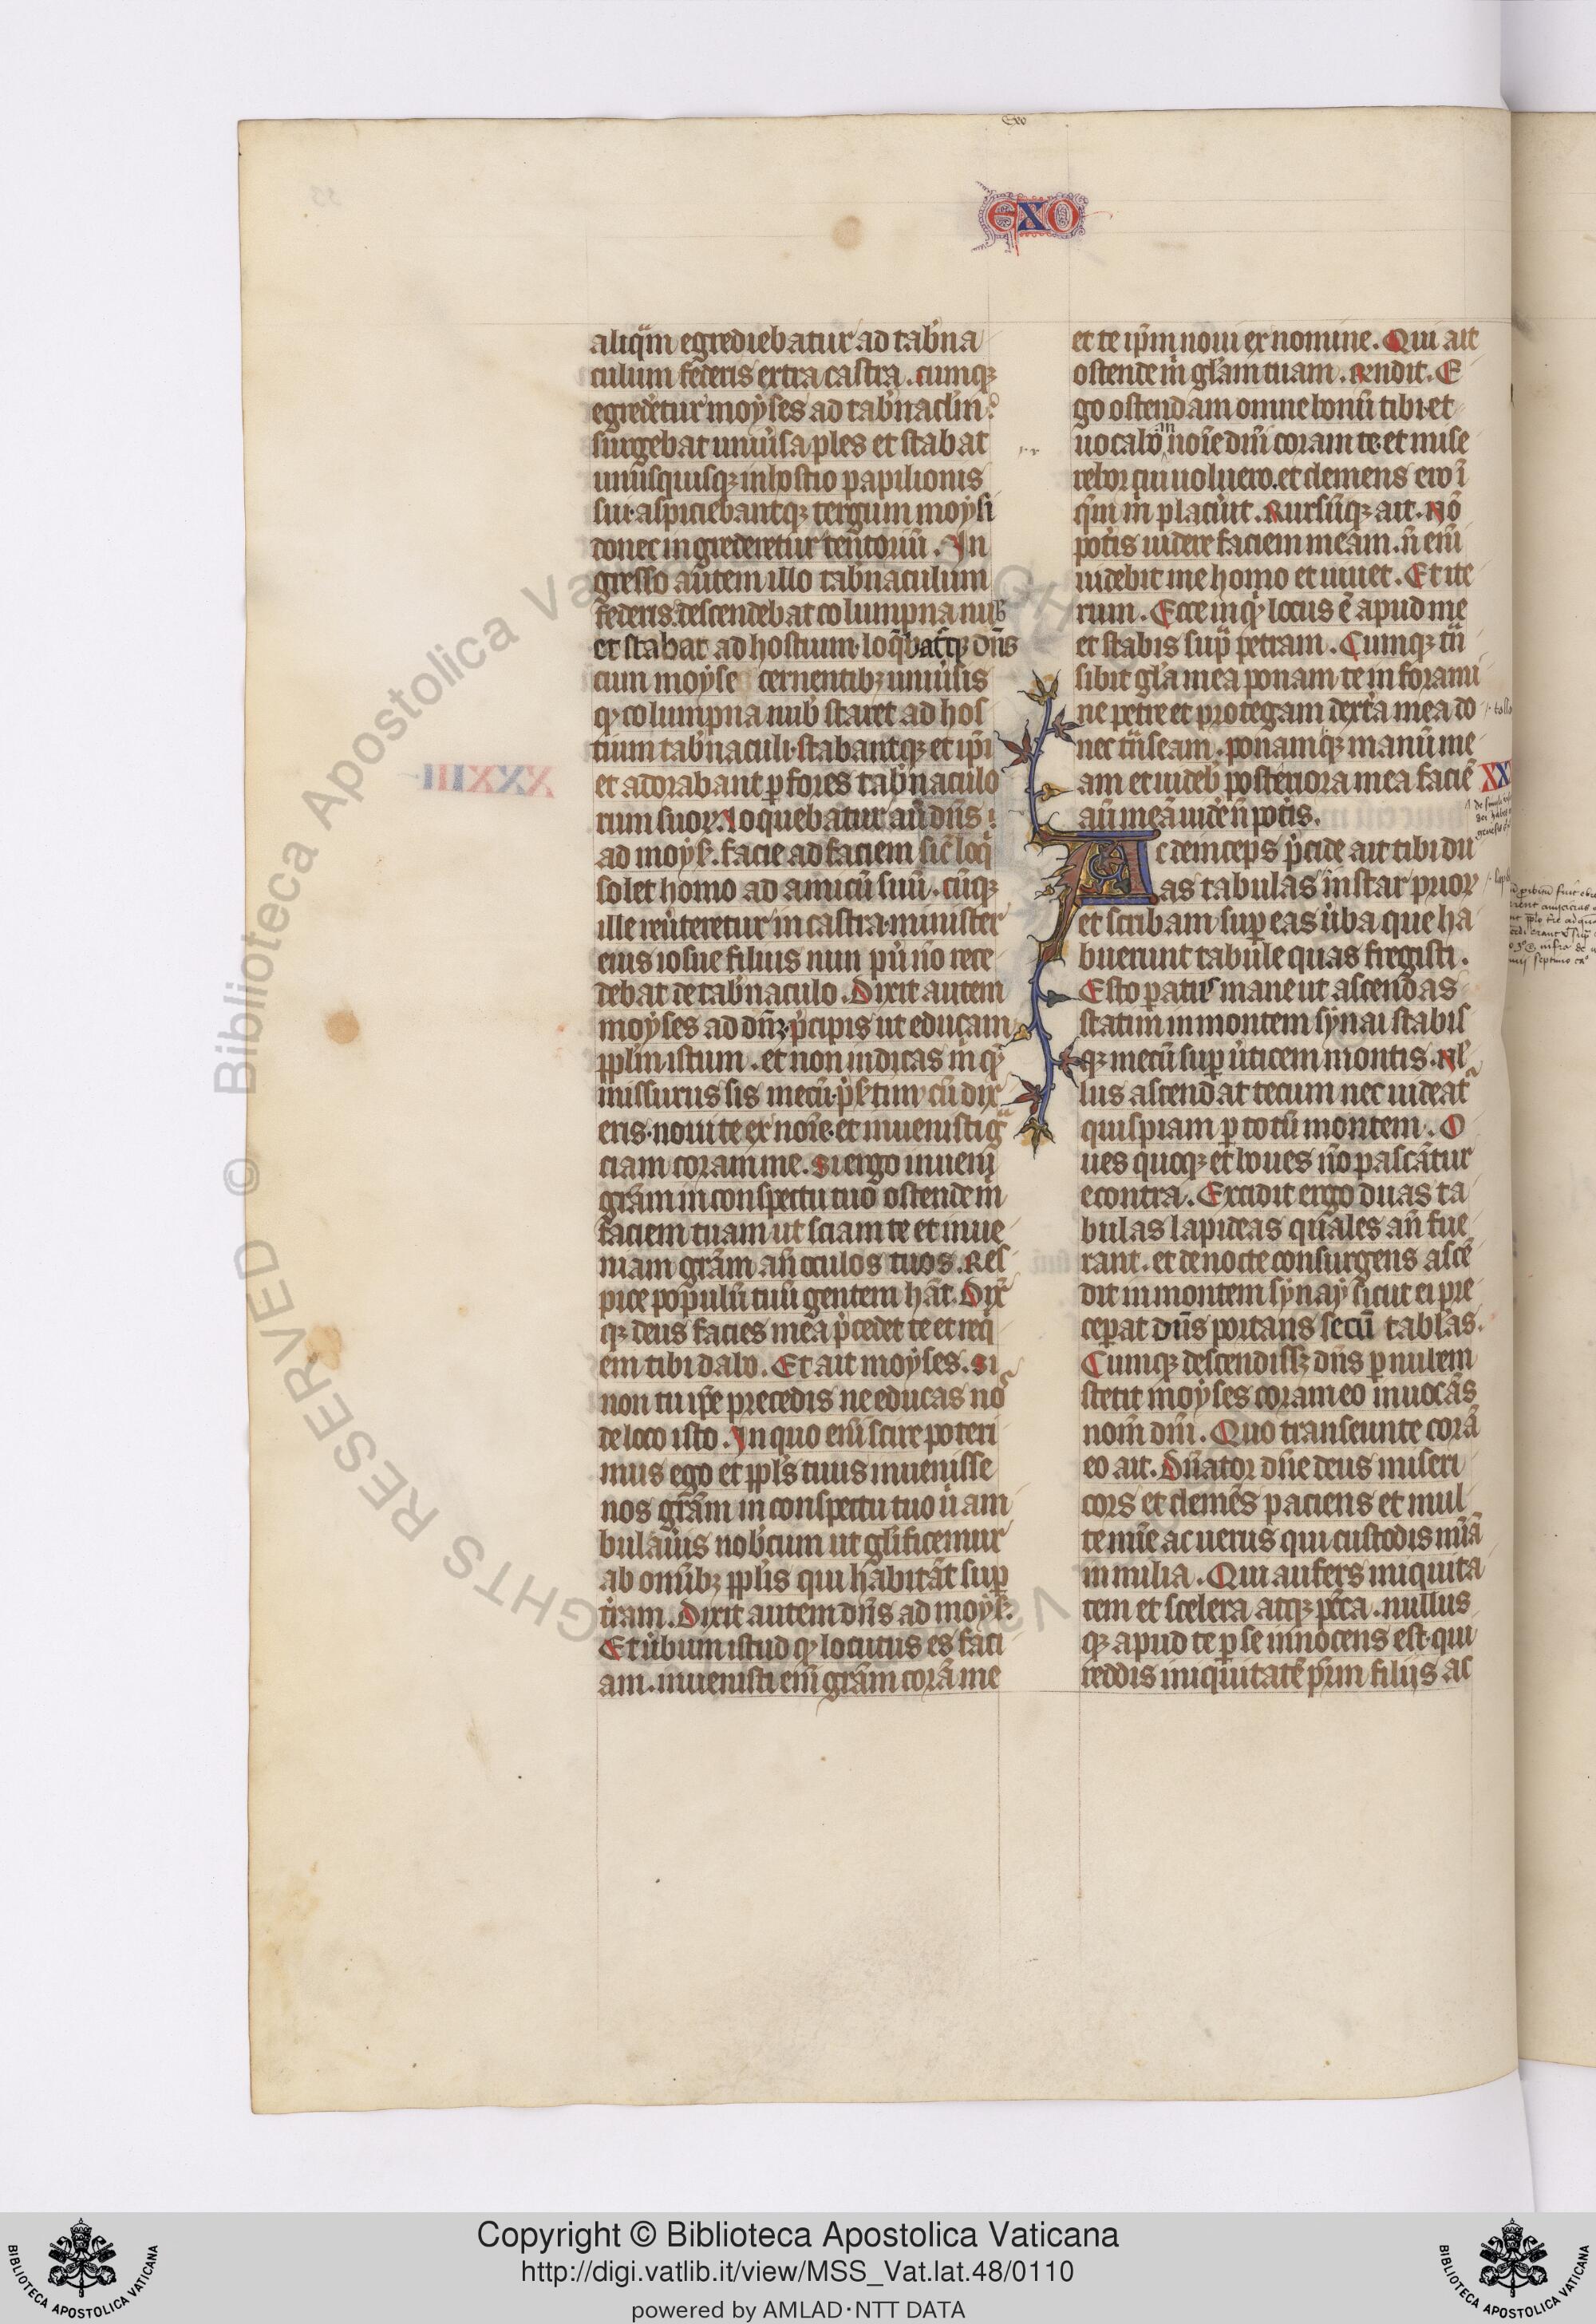 EXO
aliq̃m egrediebatur ad tab̃na
culum federis extra castra. cumqꝫ
egredet̃ur moẏses ad tab̃naclm̃:
surgebat uniũsa plebs et stabat
unusquisqꝫ in hostio papilionis
sui. aspiciebantqꝫ tergum moẏsi
donec ingrederetur tentoriũ. In
gresso autem illo tab̃naculum
federis. descendebat columpna nub̃
et stabat ad hostium. loq̃batqꝫ dñs
cum moẏse cernentibꝫ uniũsis
qꝫ columpna nub̃ staret ad hos
tium tab̃naculi. stabantqꝫ et ip̃i
et adorabant ꝑ fores tab̃naculo
rum suoꝝ. Loquebatur aũ dñs
ad moẏs̃. facie ad faciem sic̃ loq̃
solet homo ad amicũ suũ. cũqꝫ
ille reũteretur in castra. minister
eius iosue filius nun pũ nõ rece
debat de tab̃naculo. Dixit autem
moẏses ad dñꝫ. p̃cipis ut educam
ppl̃m istum. et non indicas m̃ qꝫ
missurus sis mecũ. p̃s̃tim cũ dix̃
eris. noui te ex noĩe. et inuenisti g̃
ciam coram me. Si ergo inueni
grãm in conspectu tuo ostende m̃
faciem tuam ut sciam te et inue
niam grãm añ oculos tuos. Res
pice populũ tuũ gentem hãc. Dix̃
qꝫ deus facies mea p̃cedet te et req̃
em tibi dabo. Et ait moẏses. Si
non tu ip̃e precedis ne educas nos
de loco isto. In quo eĩ scire poteri
mus ego et ppl̃s tuus inuenisse
nos grãm in conspectu tuo ñ am
bulaũis nob̃cum ut gl̃ificemur
ab omĩbꝫ ppl̃is qui habitãt suꝑ
t̃ram. Dixit autem dñs ad moẏs̃.
Et ũbum istud qꝫ locutus es faci
am. inuenisti eĩ grãm corã me
et te ip̃m noui ex nomine. Qui ait
ostende m̃ gl̃am tuam. Rñdit. E
go ostendam omne bonũ tibi. et
uocabo in noĩe dñi coram te. et mise
rebor cui uoluero. et clemens ero ĩ
q̃m m̃ placũit. Rursũqꝫ ait. Nõ
pot̃is uidere faciem meam. ñ eĩ
uidebit me homo et uiuet. Et ite
rum. Ecce inq̃ locus ẽ apud me
et stabis sup̃ petram. Cumqꝫ t̃n
sibit gl̃a mea ponam te in forami
ne petre et protegam dext̃a mea do
nec t̃nseam. ponamqꝫ manũ me
am et uideb̃ posteriora mea faciẽ
aũ meã uidẽ ñ pot̃is.
Ac deinceps p̃cide ait tibi du
as tabulas instar prioꝝ
et scribam suꝑ eas ũba que ha
buerunt tabule quas fregisti.
Esto paratus mane ut ascendas
statim in montem sẏnai stabis
qꝫ mecũ suꝑ ũticem montis. Nl̃
lus ascendat tecum nec uideat̃
quispiam ꝑ totũ montem. O
ues quoqꝫ et boues nõ pascãtur
econtra. Excidit ergo duas ta
bulas lapideas quales añ fue
rant. et de nocte consurgens ascẽ
dit in montem sẏnaẏ sicut ei pre
ceꝑat dñs portans secũ tabl̃as.
Cumqꝫ descendissꝫ dñs ꝑ nubem
stetit moẏses coram eo inuocãs
nom̃ dñi. Quo transeunte corã
eo ait. Dñator dñe deus miseri
cors et clemẽs paciens et mul
te mĩe ac uerus qui custodis mĩã
in milia. Qui aufers iniquita
tem et scelera atqꝫ pc̃ca. nullus
qꝫ apud te ꝑ se innocens est. qui
reddis iniquitatẽ pr̃m filijs ac
XX
Copyright © Biblioteca Apostolica Vaticana
http://digi.vatlib.it/view/MSS_Vat.lat.48/0110
powered by AMLAD·NTT DATA
BIBLIOTECA APOSTOLICA VATICANA
BIBLIOTECA APOSTOLICA VATICANA